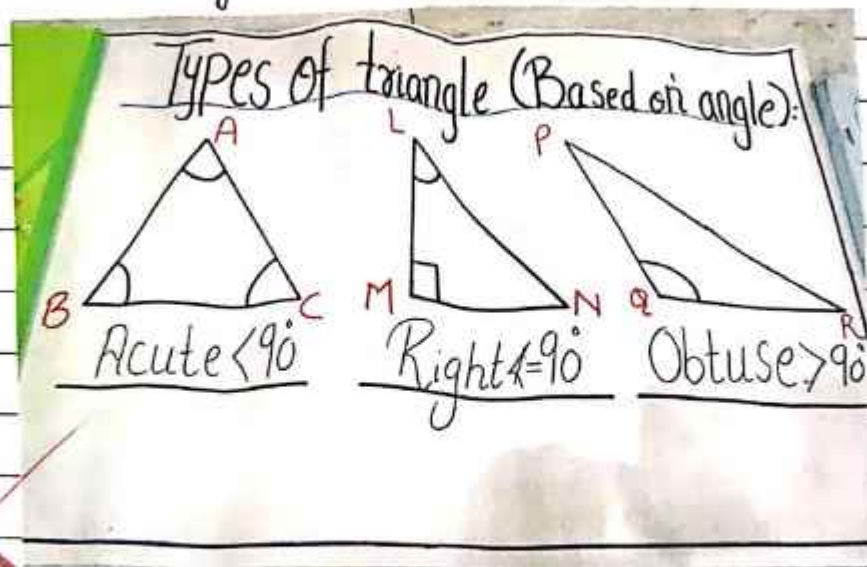 Types of triangle (Based on angle):
A L P
B C M N Q R
Acute <90° Right∡=90° Obtuse >90°